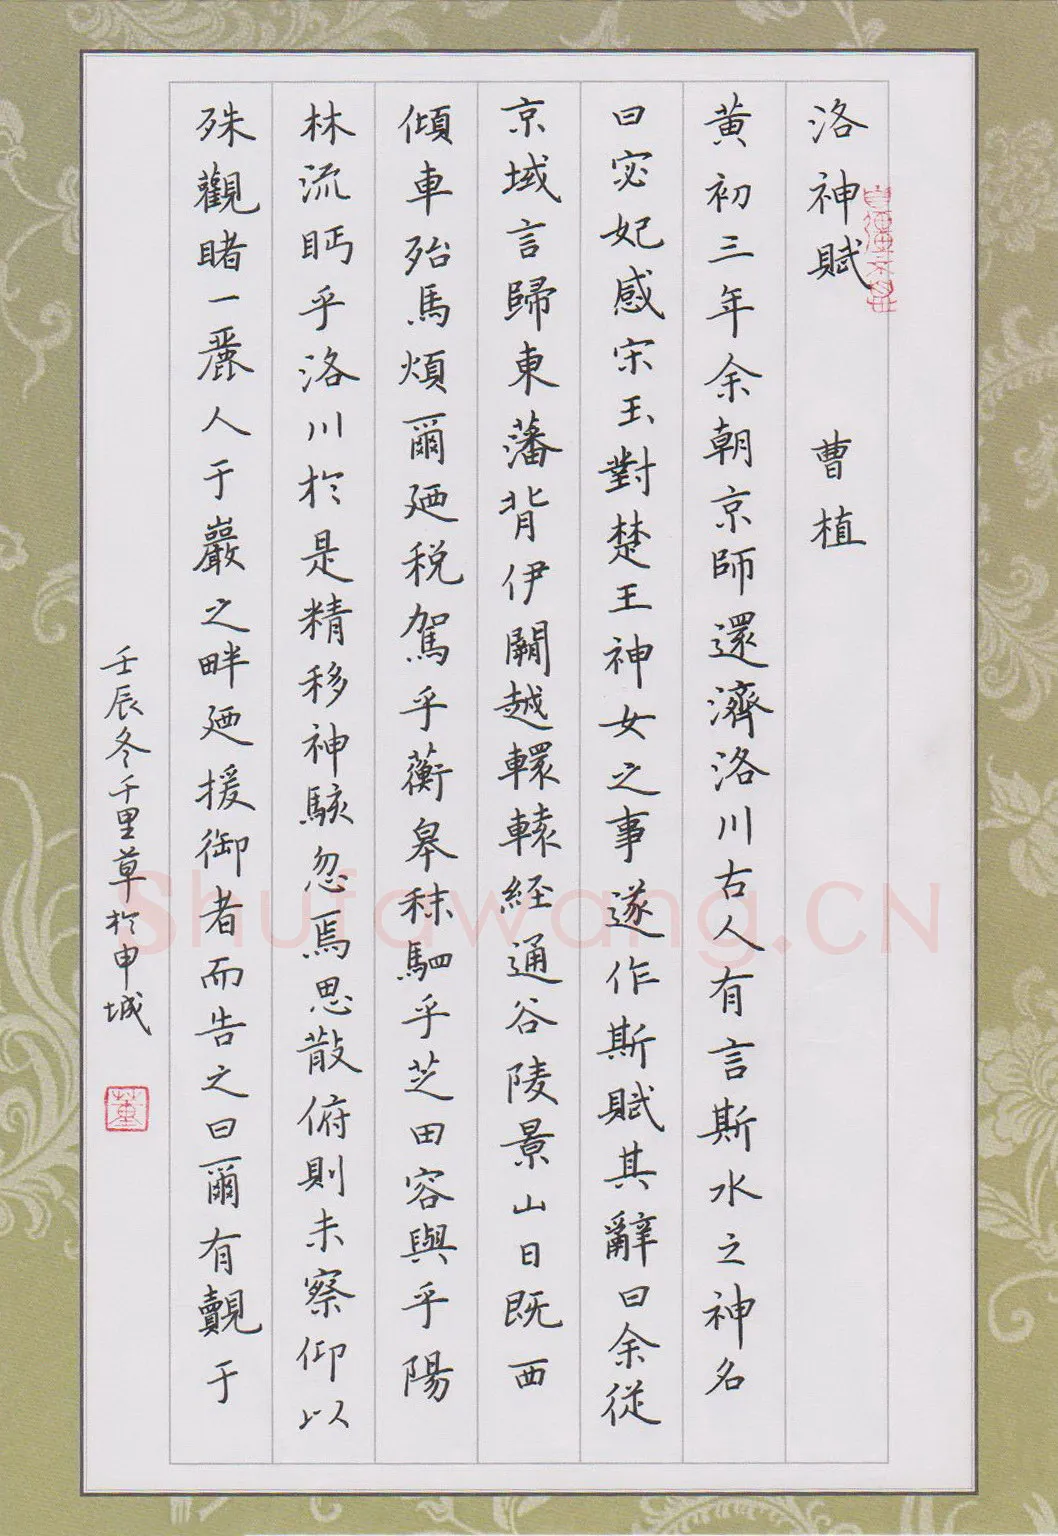 洛神賦 曹植
黃初三年余朝京師還濟洛川古人有言斯水之神名
曰宓妃感宋玉對楚王神女之事遂作斯賦其辭曰余從
京域言歸東藩背伊闕越轘轅経通谷陵景山日既西
傾車殆馬煩爾廼税駕乎蘅皋秣駟乎芝田容與乎陽
林流眄乎洛川於是精移神駭忽焉思散俯則未察仰以
殊觀睹一麗人于巖之畔廼援御者而告之曰爾有覿于
壬辰冬千里草於申城
董
Shufawang.CN